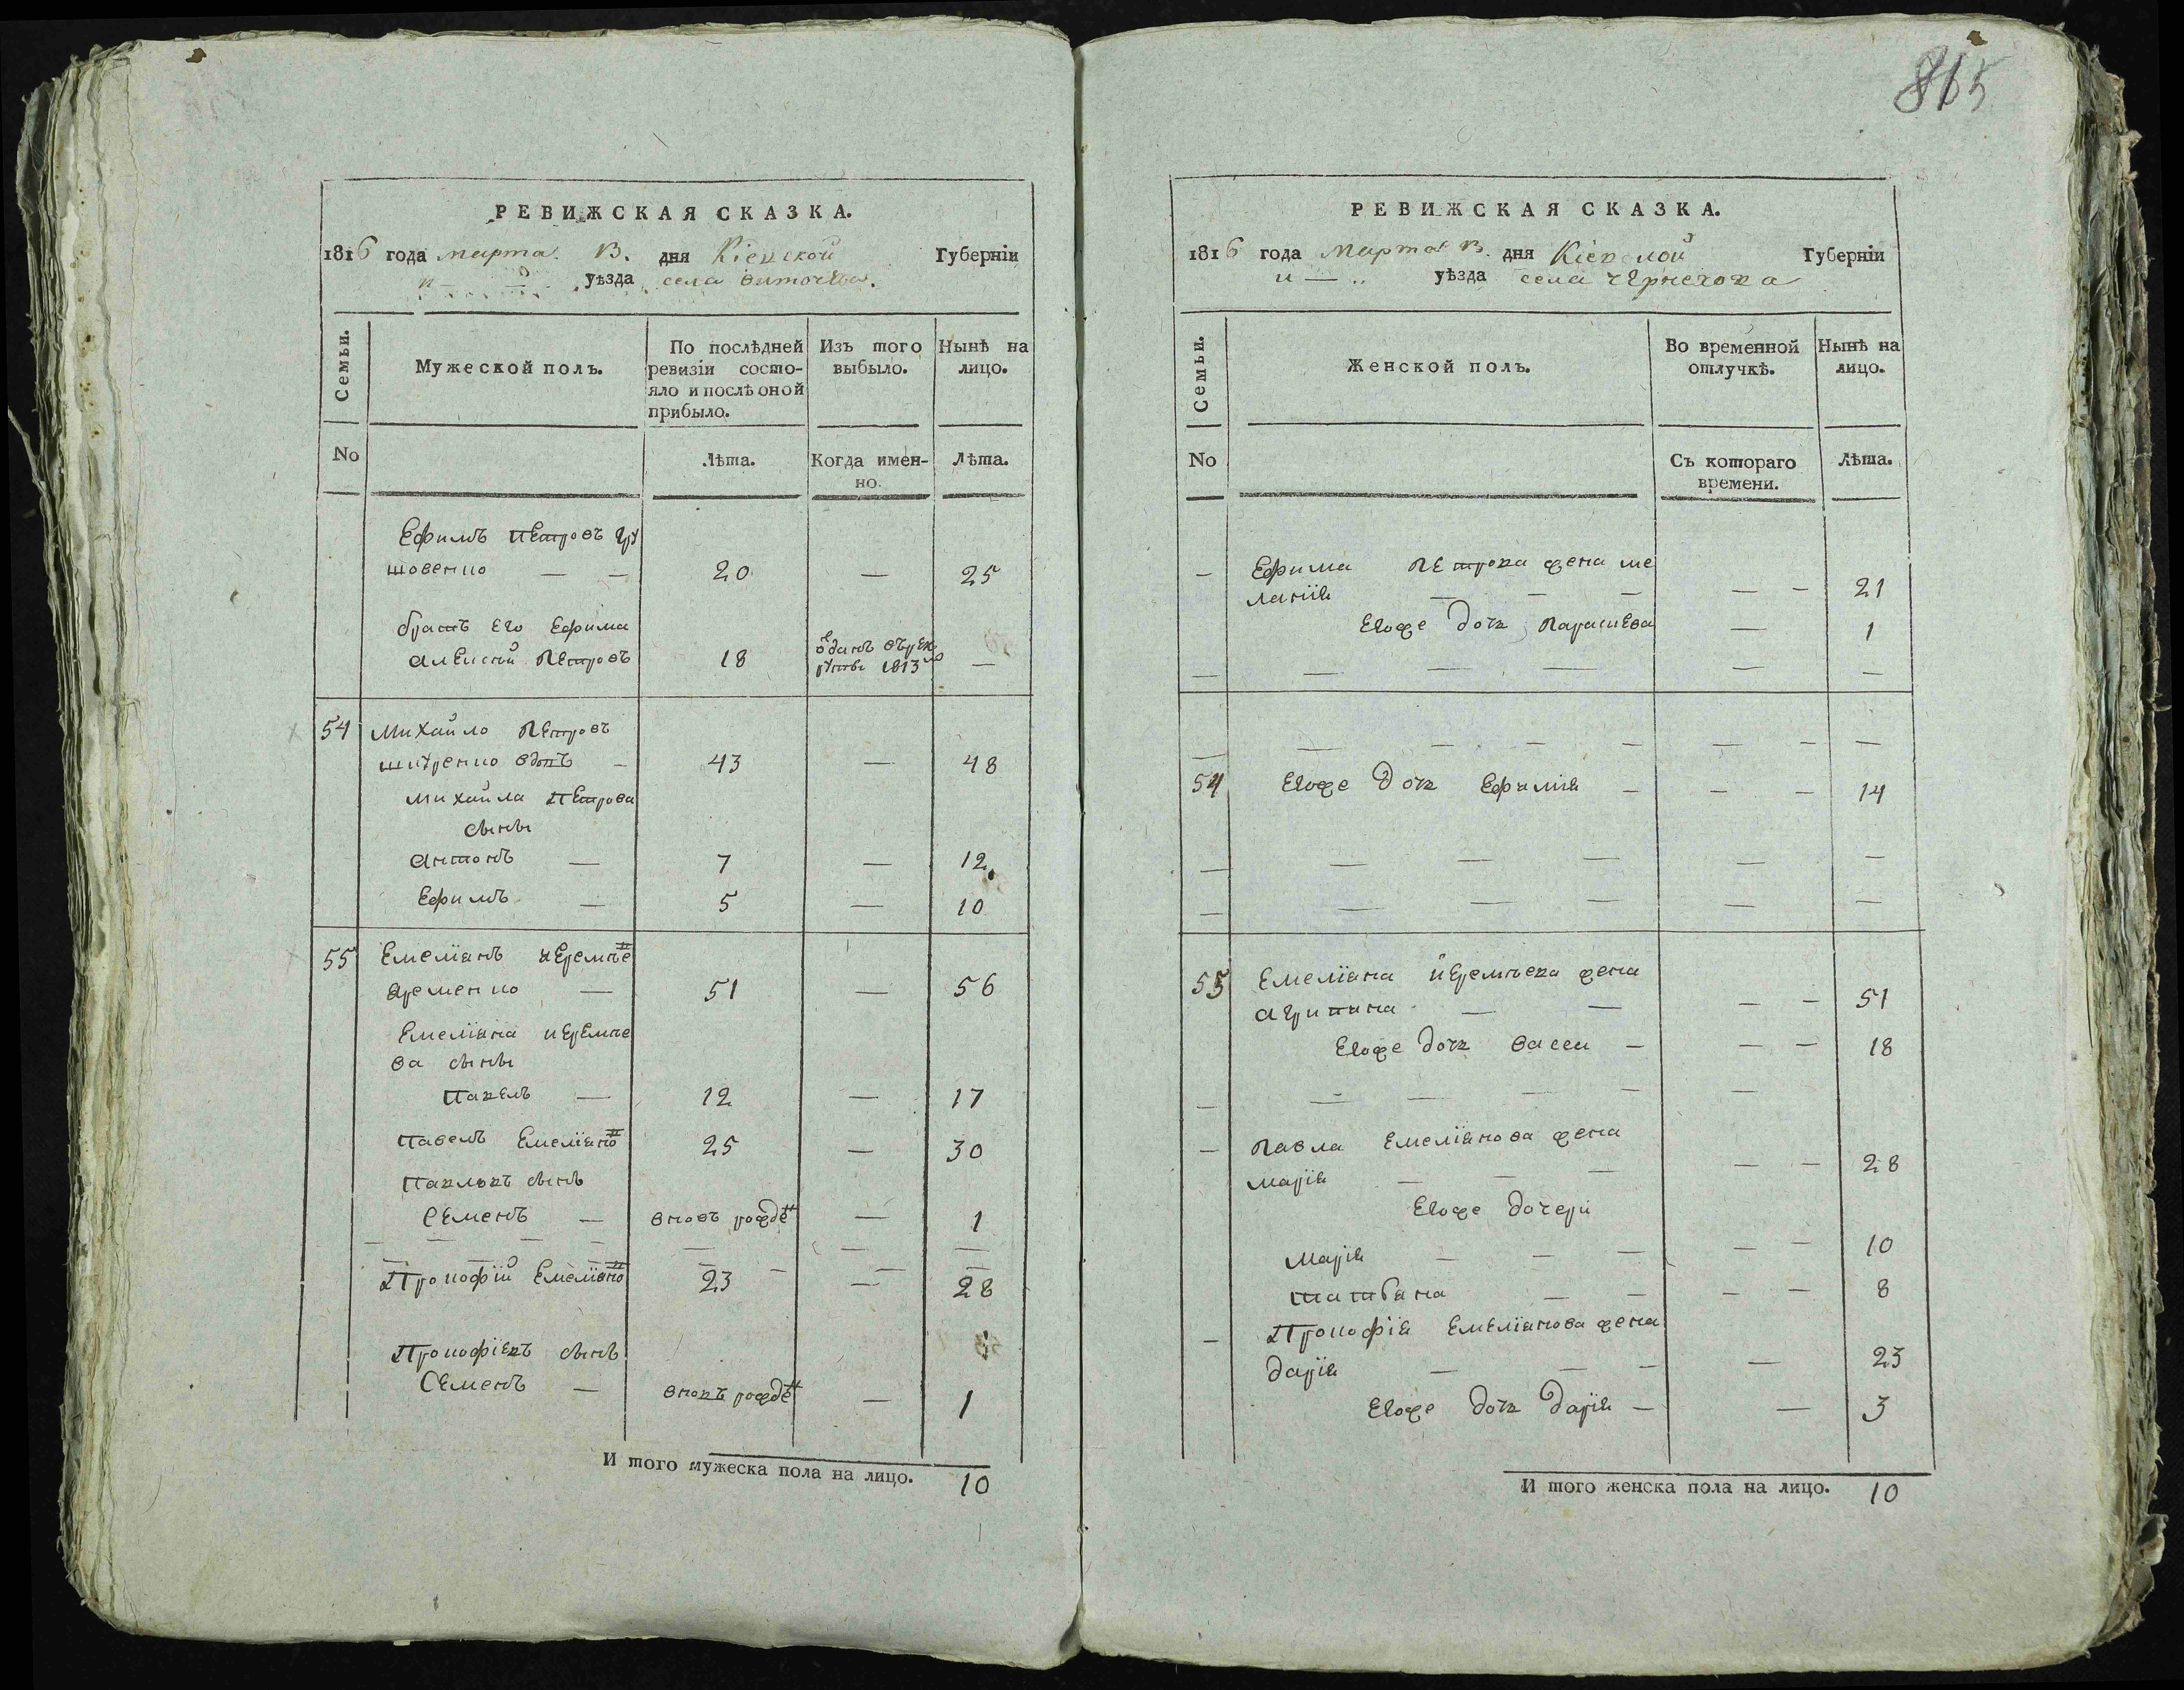 815
РЕВИЖСКАЯ СКАЗКА.
1816 года марта 13. дня Кіевской Губерніи
уѣзда села
Семьи.
Мужеской полъ.
По послѣдней ревизіи состо-
яло и послѣ оной
прибыло.
Изъ того
выбыло.
Нынѣ на
лицо.
No
Лѣта.
Когда имен-
но.
Лѣта.
Ефимъ Петровъ Гру
шовенко — — 20 — 25
братъ его Ефима
Алексѣй Петровъ 18 ѿданъ въ рек
руты 1813го —
54 Михайло Петровъ
вдовъ — 43 — 48
Михайла Петрова
сыны
Антонъ — 7 — 12
Ефимъ — 5 — 10
55 Емеліянъ Иеремѣе
Яременко — 51 — 56
Емеліяна Иеремѣе
ва сыны
Павелъ — 12 — 17
Павелъ Емеліяно 25 — 30
Павловъ сынъ
Семенъ — вновь рожде — 1
Прокофій Емеліяно 23 — 28
Прокофіевъ сынъ
Семенъ — вновь рожде — 1
И того мужеска пола на лицо. 10
РЕВИЖСКАЯ СКАЗКА.
1816 года Марта 13. дня Кіевской Губерніи
и — уѣзда села Чернехова
Семьи.
Женской полъ.
Во временной
отлучкѣ.
Нынѣ на
лицо.
No
Съ котораго
времени.
Лѣта.
— Ефима Петрова жена Ме
ланія — — — — — 21
Егоже дочь Параскева — 1
54 Егоже дочь Ефимія — — — 14
55 Емеліяна Иеремѣева жена
Агрипина — — — — 51
Егоже дочь Васса — — — 18
— Павла Емеліянова жена
Марія — — — — — 28
Егоже дочери
Марія — — — — — 10
Татіяна — — — — 8
— Прокофія Емеліянова жена
Дарія — — — — 23
Егоже дочь Дарія — — 3
И того женска пола на лицо. 10